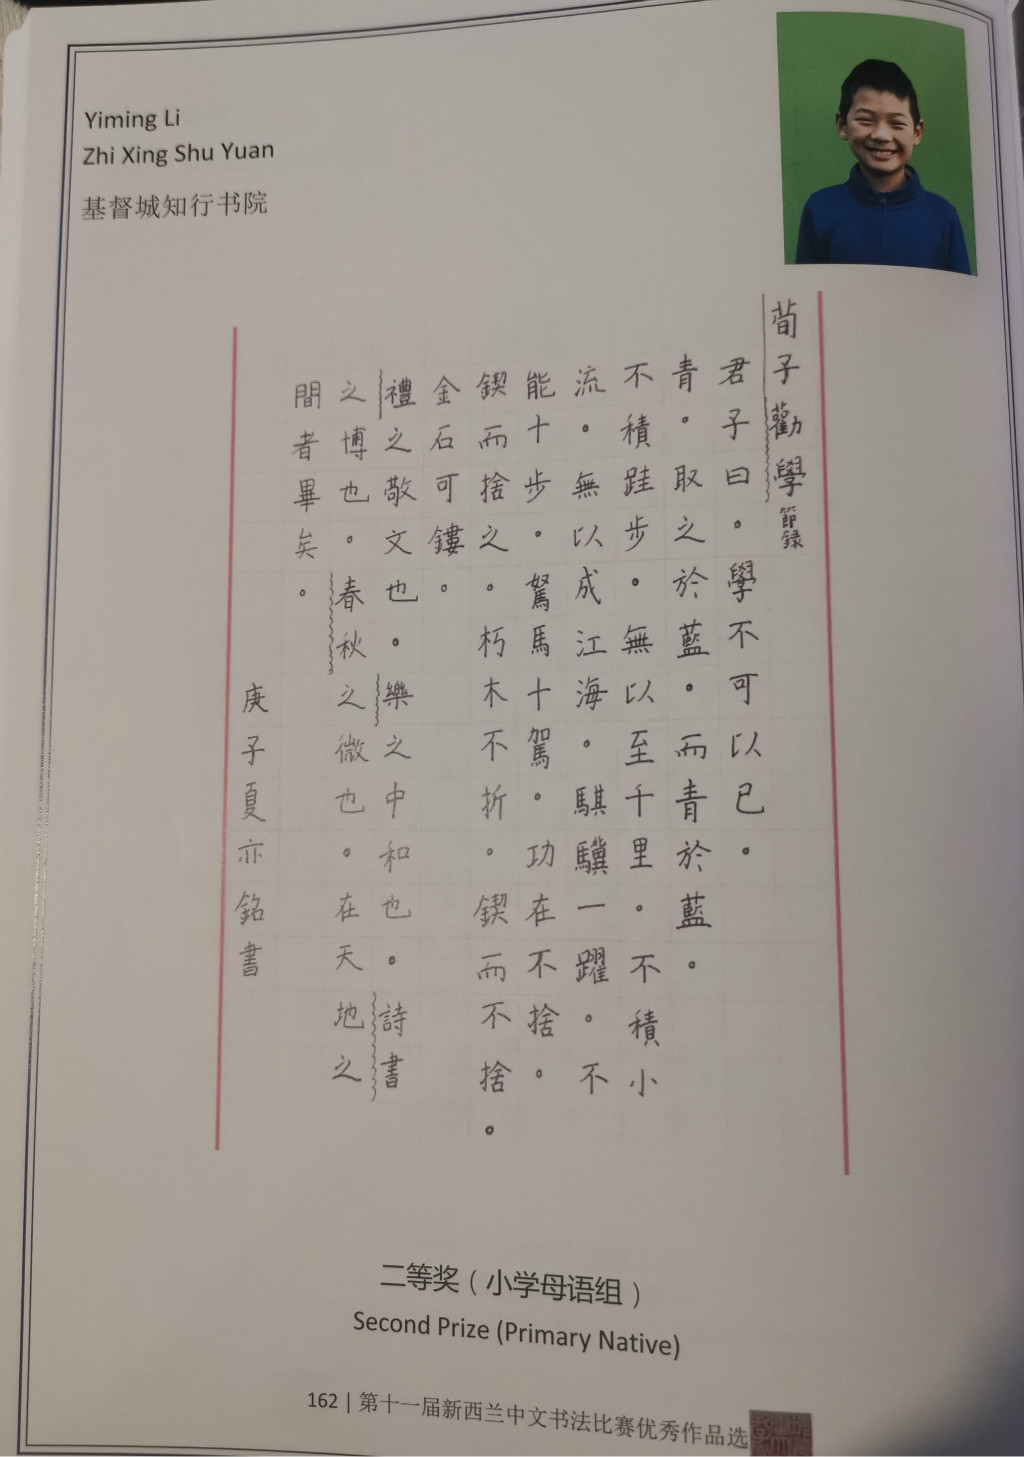 Yiming Li
Zhi Xing Shu Yuan
基督城知行书院
荀子勸學節録
君子曰。學不可以已。
青。取之於藍。而青於藍。
不積跬步。無以至千里。不積小
流。無以成江海。騏驥一躍。不
能十步。駑馬十駕。功在不捨。
鍥而捨之。朽木不折。鍥而不捨。
金石可鏤。
禮之敬文也。樂之中和也。詩書
之博也。春秋之微也。在天地之
間者畢矣。
庚子夏亦銘書
二等奖（小学母语组）
Second Prize (Primary Native)
162 | 第十一届新西兰中文书法比赛优秀作品选